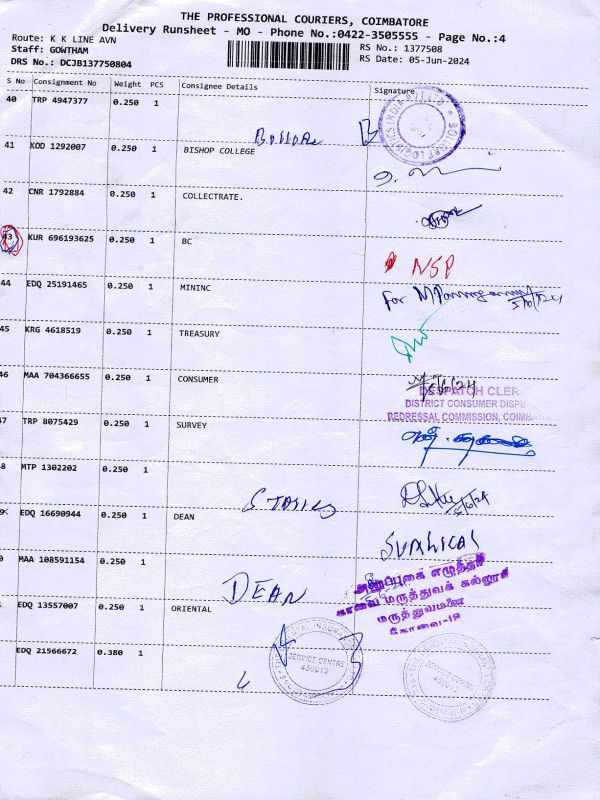 THE PROFESSIONAL COURIERS, COIMBATORE
Delivery Runsheet - MO - Phone No.:0422-3505555 - Page No.:4
Route: K K LINE AVN
RS No.: 1377508
Staff: GOWTHAM
RS Date: 05-Jun-2024
DRS No.: DCJB137750804
S No Consignment No Weight PCS Consignee Details Signature
40 TRP 4947377 0.250 1
41 KOD 1292007 0.250 1 BISHOP COLLEGE
42 CNR 1792884 0.250 1 COLLECTRATE.
43 KUR 696193625 0.250 1 BC
NSP
44 EDQ 25191465 0.250 1 MININC
For
45 KRG 4618519 0.250 1 TREASURY
46 MAA 704366655 0.250 1 CONSUMER
5/6/24
DESPATCH CLER
DISTRICT CONSUMER DISPU
REDRESSAL COMMISSION, COIMBA
47 TRP 8075429 0.250 1 SURVEY
8 MTP 1302202 0.250 1
5/6/24
EDQ 16690944 0.250 1 DEAN
MAA 108591154 0.250 1
DEAN
மருத்துவக்
மருத்துவமனை
EDQ 13557007 0.250 1 ORIENTAL
SERVICE CENTRE
EDQ 21566672 0.380 1